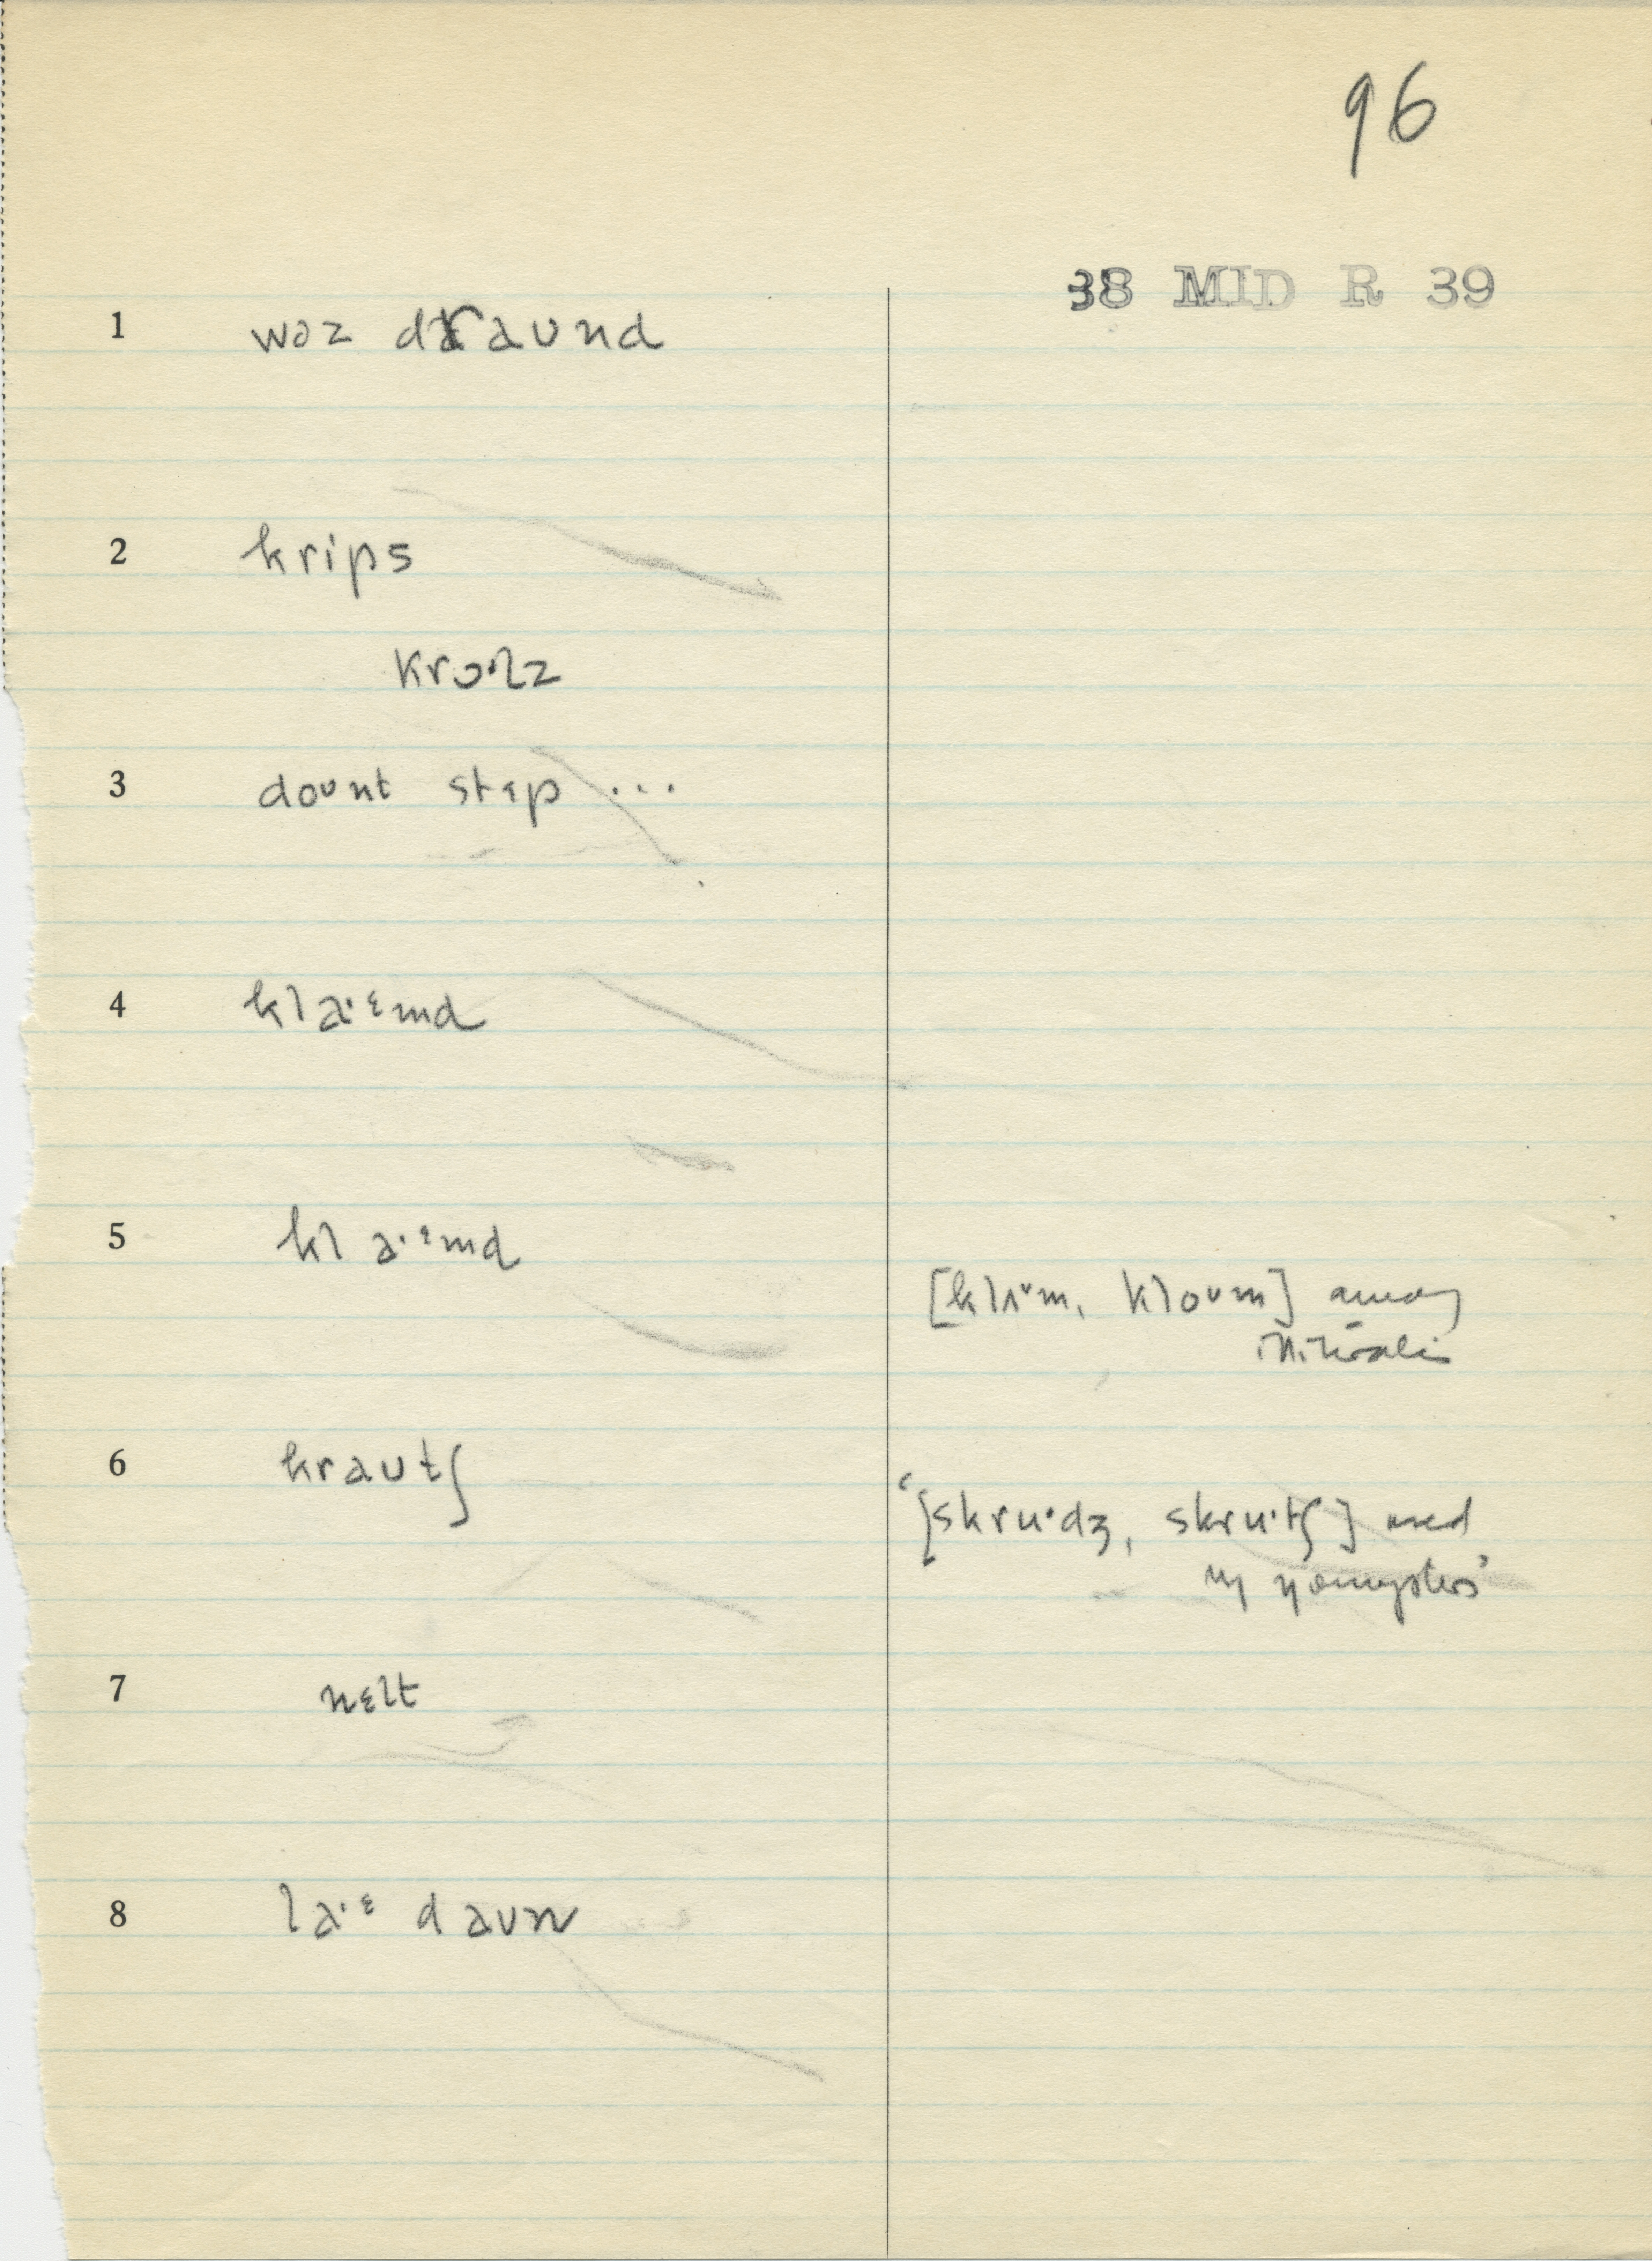 96
38 MID R 39
1 wəz draund
2 krips
krɔ·lz
3 dount stɛp ...
4 kla·ᵋmd
5 kla·ᵋmd
[klʌᵛm, kloᴜm] among
6 krautʃ
‘[skru·dʒ, skru·tʃ] used
by youngsters’
7 nɛlt
8 la·ᵋ daun